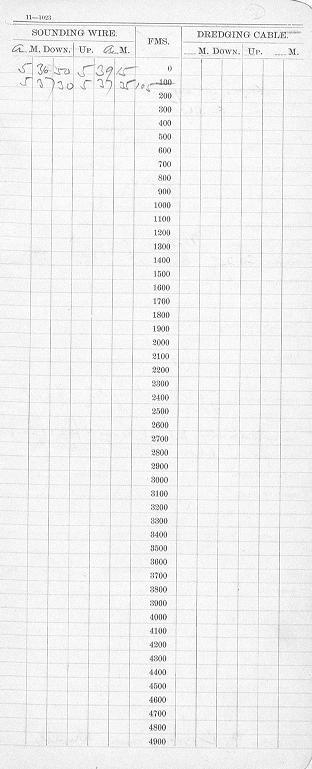 11—1023
SOUNDING WIRE. FMS. DREDGING CABLE.
a. M. DOWN. UP. a. M. M. DOWN. UP. M.
5 36 50 5 39 15 0
5 37 30 5 37 35 105 100
200
300
400
500
600
700
800
900
1000
1100
1200
1300
1400
1500
1600
1700
1800
1900
2000
2100
2200
2300
2400
2500
2600
2700
2800
2900
3000
3100
3200
3300
3400
3500
3600
3700
3800
3900
4000
4100
4200
4300
4400
4500
4600
4700
4800
4900